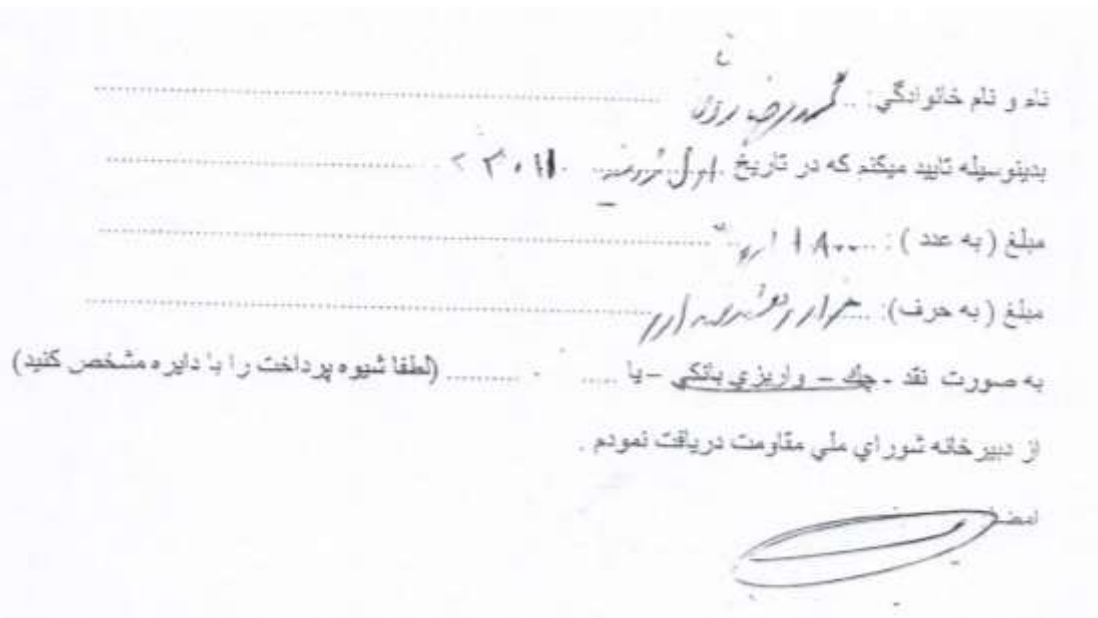 نام و نام خانوادگي: محمدرضا روحاني
بدينوسيله تاييد ميکنم که در تاريخ اول
مبلغ ( به عدد ) : ۱۸۰۰ ارو
مبلغ ( به حرف): هزار و هشتصد ارو
به صورت نقد - چك – واريزي بانكي – يا ..... (لطفا شيوه پرداخت را با دايره مشخص كنيد)
از دبيرخانه شوراي ملي مقاومت دريافت نمودم .
امضا